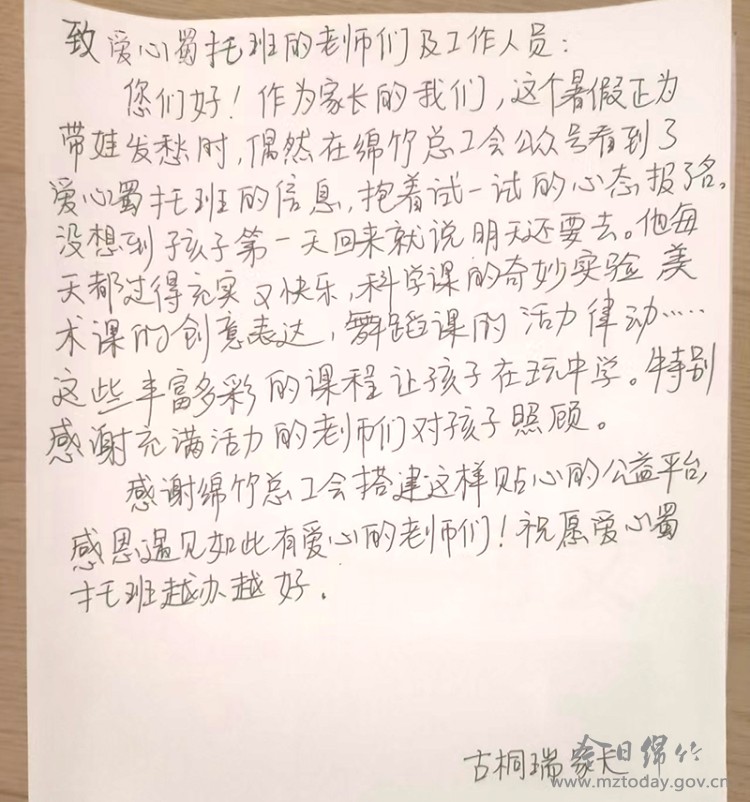 致爱心蜀托班的老师们及工作人员：
您们好！作为家长的我们，这个暑假正为
带娃发愁时，偶然在绵竹总工会公众号看到了
爱心蜀托班的信息，抱着试一试的心态报了名。
没想到孩子第一天回来就说明天还要去。他每
天都过得充实又快乐，科学课的奇妙实验 美
术课的创意表达，舞蹈课的活力律动……
这些丰富多彩的课程让孩子在玩中学。特别
感谢充满活力的老师们对孩子照顾。
感谢绵竹总工会搭建这样贴心的公益平台，
感恩遇见如此有爱心的老师们！祝愿爱心蜀
托班越办越好．
古桐瑞家长
今日绵竹
www.mztoday.gov.cn